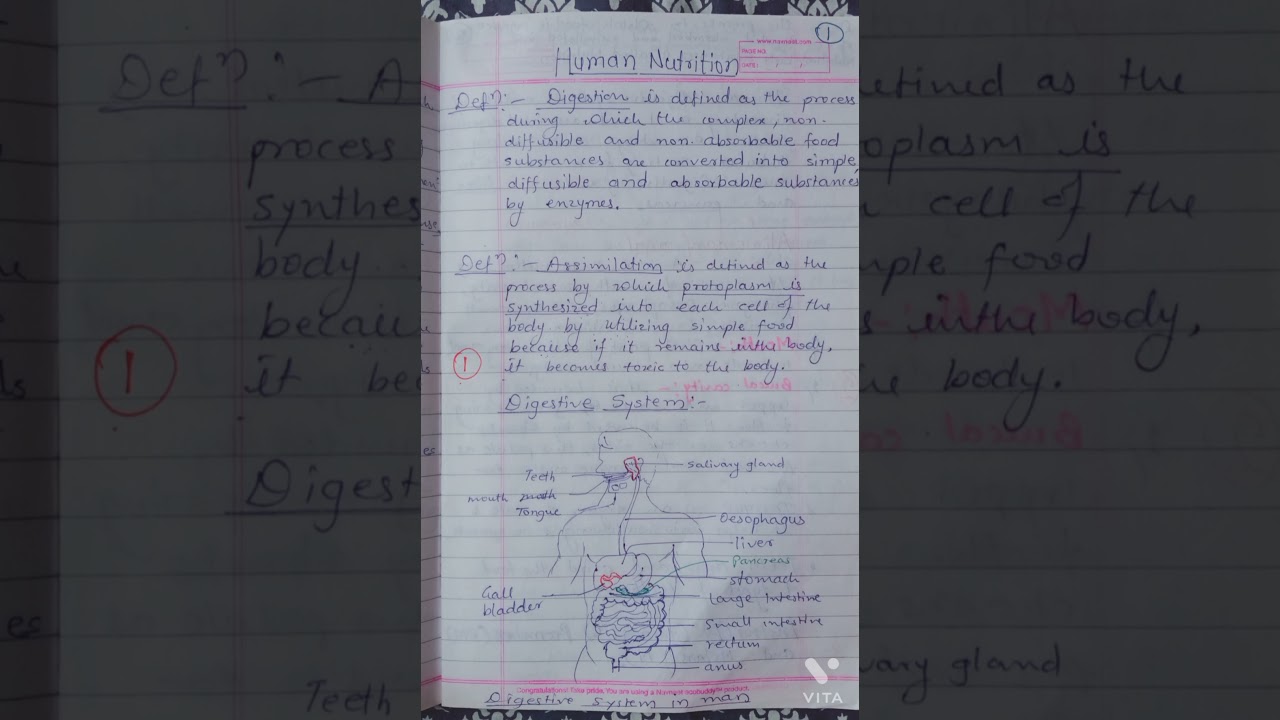 1
www.navneet.com
PAGE NO.
DATE:
Human Nutrition
Defⁿ:- Digestion is defined as the process
during which the complex, non-
diffusible and non-absorbable food
substances are converted into simple,
diffusible and absorbable substances
by enzymes.
Defⁿ:- Assimilation is defined as the
process by which protoplasm is
synthesized into each cell of the
body by utilizing simple food
because if it remains inthe body,
1 it becomes toxic to the body.
Digestive System:-
Salivary gland
Teeth
mouth
Tongue
Oesophagus
liver
Pancreas
stomach
Gall
bladder
large Intestine
Small intestive
rectum
anus
Congratulations! Take pride, You are using a Navneet youbuddy™ product.
Digestive System in man
VITA